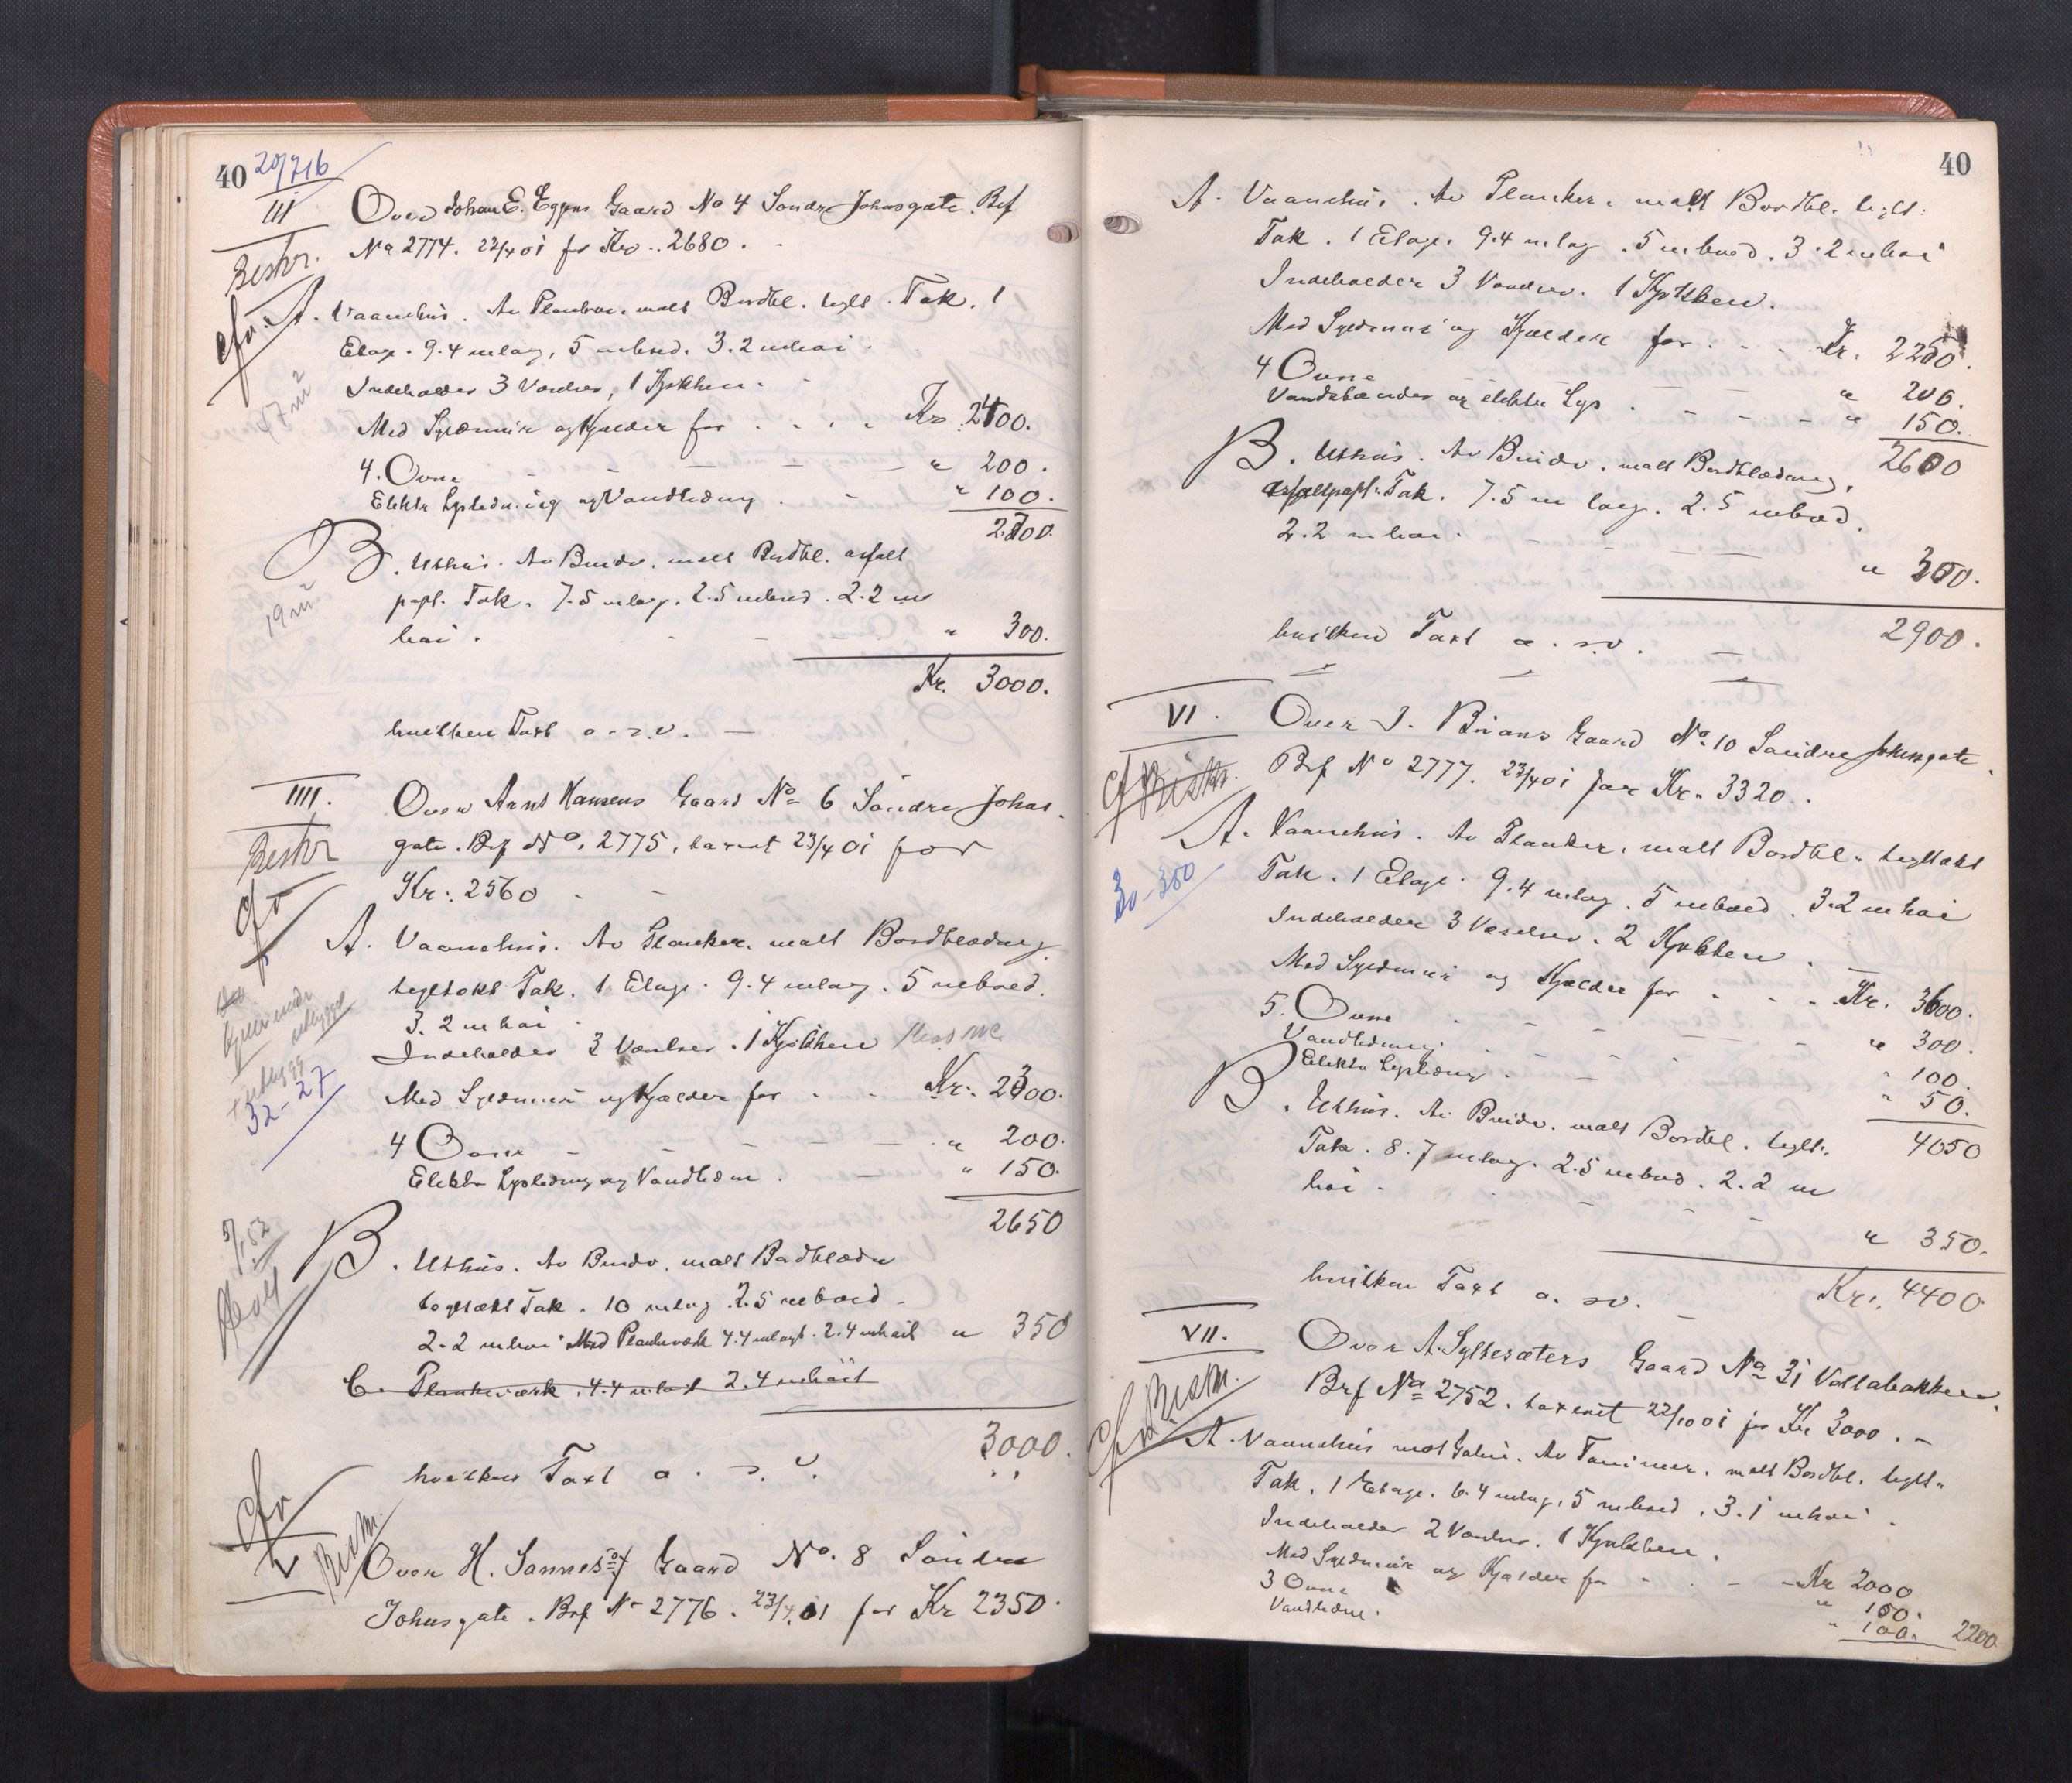 40 20/7 16
III
Over Johan E. Eggens Gaard No 4 Søndre Johnsgate. Brf
No 2774. 23/4 01 for Kr. 2680.
Beskr.
cfr. A. Vaanehus. Av Planker. malt Bordkl. teglt. Tak. 1
Etage. 9.4 m lag, 5 m bred. 3.2 m høi
47 m²
Indeholder 3 Værelser, 1 Kjøkken.
Med Syldmur og Kjælder for Kr. 2400.
4. Ovne " 200.
Elektr Lysledning og Vandledning " 100.
2700.
B. Uthus. Av Bindv. malt Bordkl. asfalt
19 m²
papt. Tak. 7.5 m lag. 2.5 m bred. 2.2 m
høi. " 300.
Kr. 3000.
hvilken Taxt o. s. v.
IIII.
Over Arnt Hansens Gaard No 6 Søndre Johns
Beskr
gate. Brf No. 2775, taxert 23/4 01 for
Kr. 2560
cfr
A. Vaanehus. Av Planker. malt Bordklædning
tegltækt Tak. 1 Etage. 9.4 m lag. 5 m bred.
3.2 m høi
Indeholder 3 Værelser. 1 Kjøkken
Med Syldmur og Kjælder for Kr. 2300.
32-27
4 Ovne " 200.
Elektr Lysledning og Vandledn. " 150.
2650
B. Uthus. Av Bindv. malt Bordklædn
tegltækt Tak. 10 m lag 2.5 m bred
2.2 m høi Med Plankeværk 4.4 m lagt. 2.4 m høit " 350
C. Plankeværk. 4.4 m lagt 2.4 m høit
3000.
hvilken Taxt o. s. v.
cfr
V
Beskr.
Over H. Sannes Gaard No. 8 Søndre
Johnsgate. Brf No 2776. 23/4 01 for Kr 2350.
40
A. Vaanehus. Av Planker. malt Bordkl. teglt.
Tak. 1 Etage. 9.4 m lag. 5 m bred. 3.2 m høi
Indeholder 3 Værelser. 1 Kjøkken.
Med Syldmur og Kjælder for Kr. 2250.
4 Ovne " 200.
Vandstænder og elektr Lys " 150.
2600
B. Uthus. Av Bindv. malt Bordklædning,
asfaltpapt. Tak. 7.5 m lag. 2.5 m bred.
2.2 m høi. " 300.
hvilken Taxt o. s. v. 2900.
VI.
Over J. Brians Gaard No. 10 Søndre Johnsgate.
cfr Beskr.
Brf No 2777. 23/4 01 for Kr. 3320.
A. Vaanehus. Av Planker. malt Bordkl. tegltækt
30-350
Tak. 1 Etage. 9.4 m lag. 5 m bred. 3.2 m høi
Indeholder 3 Værelser. 2 Kjøkken.
Med Syldmur og Kjælder for Kr. 3600.
5. Ovne " 300.
Vandledning " 100.
Elektr Lysledng " 50.
4050
B. Uthus. Av Bindv. malt Bordkl. teglt.
Tak. 8.7 m lag. 2.5 m bred. 2.2 m
høi " 350.
hvilken Taxt o. s. v. Kr. 4400
VII.
Over A. Syltesæters Gaard No 31 Vollabakken.
cfr Beskr.
Brf No 2752. taxert 22/10 01 for Kr 3000.
A. Vaanehus mot Gaten. Av Tømmer. malt Bordkl. teglt.
Tak. 1 Etage. 6.4 m lag, 5 m bred. 3.1 m høi.
Indeholder 2 Værelser. 1 Kjøkken.
Med Syldmur og Kjælder for Kr 2000
3 Ovne " 100.
Vandledn. " 100. 2200